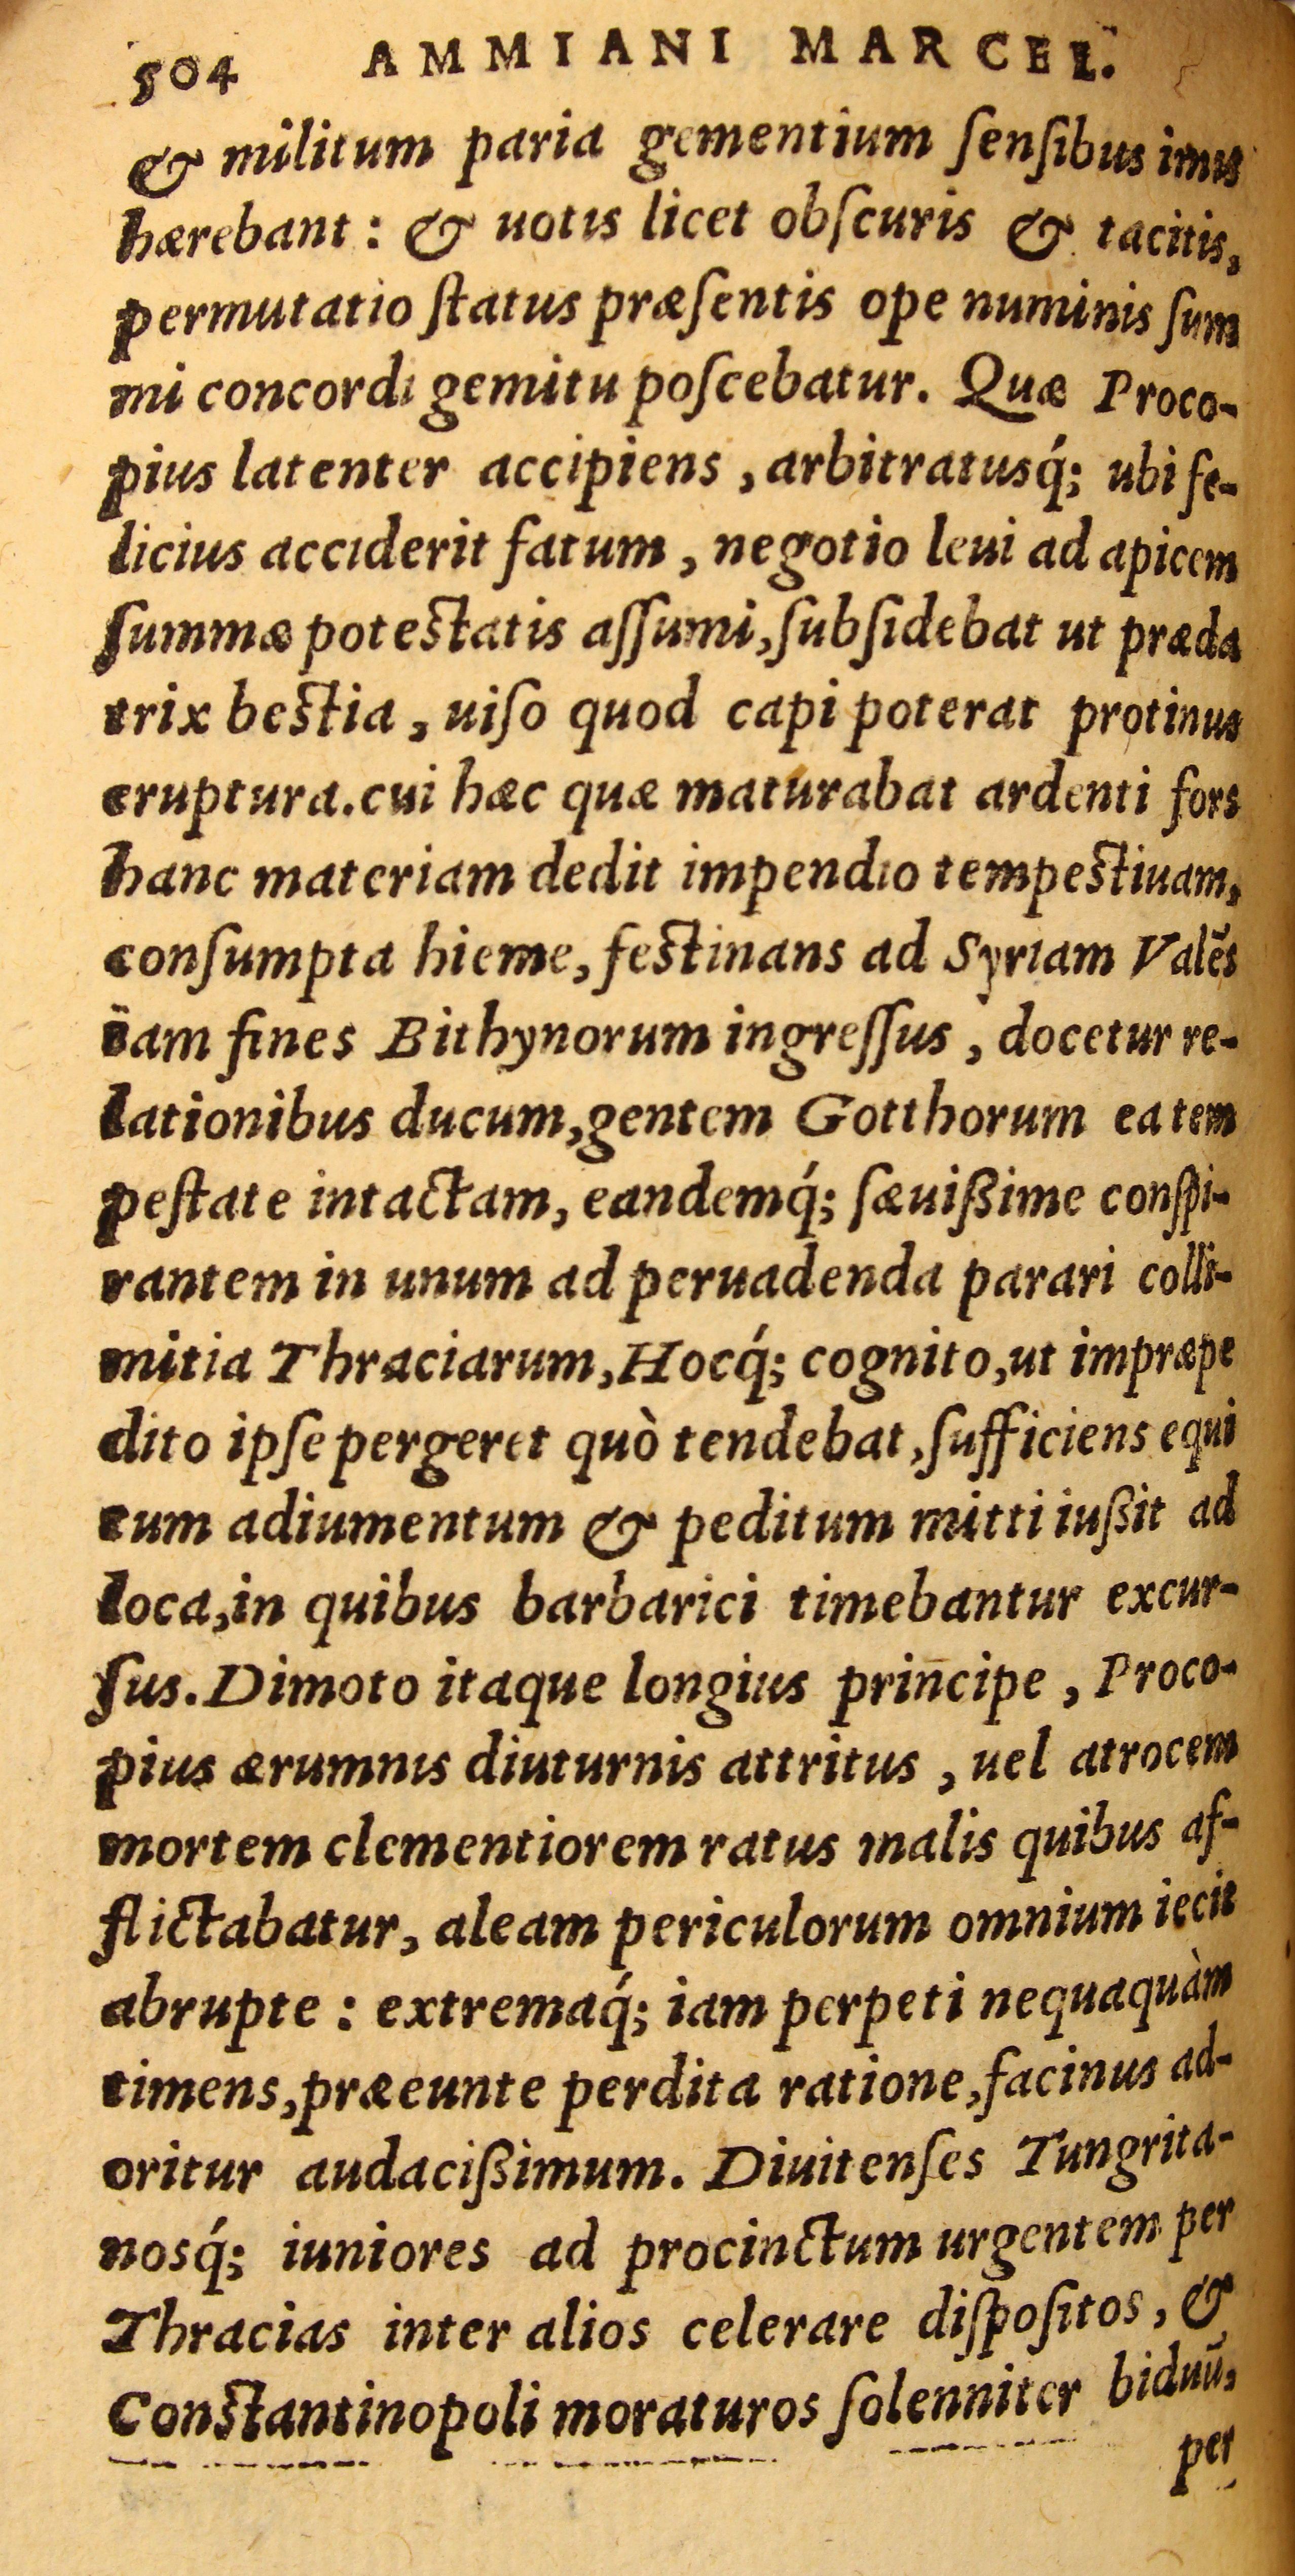 504 AMMIANI MARCEL.
& militum paria gementium ſenſibus imis
hærebant: & uotis licet obſcuris & tacitis,
permutatio ſtatus præſentis ope numinis ſum
mi concordi gemitu poſcebatur. Quæ Proco-
pius latenter accipiens, arbitratusq́; ubi fe-
licius acciderit fatum, negotio leui ad apicem
ſummæ poteſtatis aſſumi, ſubſidebat ut præda
trix beſtia, uiſo quod capi poterat protinus
eruptura. cui hæc quæ maturabat ardenti fors
hanc materiam dedit impendio tempeſtiuam,
conſumpta hieme, feſtinans ad Syriam Valẽs
iam fines Bithynorum ingreſſus, docetur re-
lationibus ducum, gentem Gotthorum ea tem
peſtate intactam, eandemq́; ſæuißime conſpi-
rantem in unum ad peruadenda parari colli-
mitia Thraciarum, Hocq́; cognito, ut impræpe
dito ipſe pergeret quò tendebat, ſufficiens equi
tum adiumentum & peditum mitti iußit ad
loca, in quibus barbarici timebantur excur-
ſus. Dimoto itaque longius principe, Proco-
pius ærumnis diuturnis attritus, uel atrocem
mortem clementiorem ratus malis quibus af-
flictabatur, aleam periculorum omnium iecit
abrupte: extremaq́; iam perpeti nequaquàm
timens, præeunte perdita ratione, facinus ad-
oritur audacißimum. Diuitenſes Tungrita-
nosq́; iuniores ad procinctum urgentem per
Thracias inter alios celerare diſpoſitos, &
Conſtantinopoli moraturos ſolenniter biduũ,
per